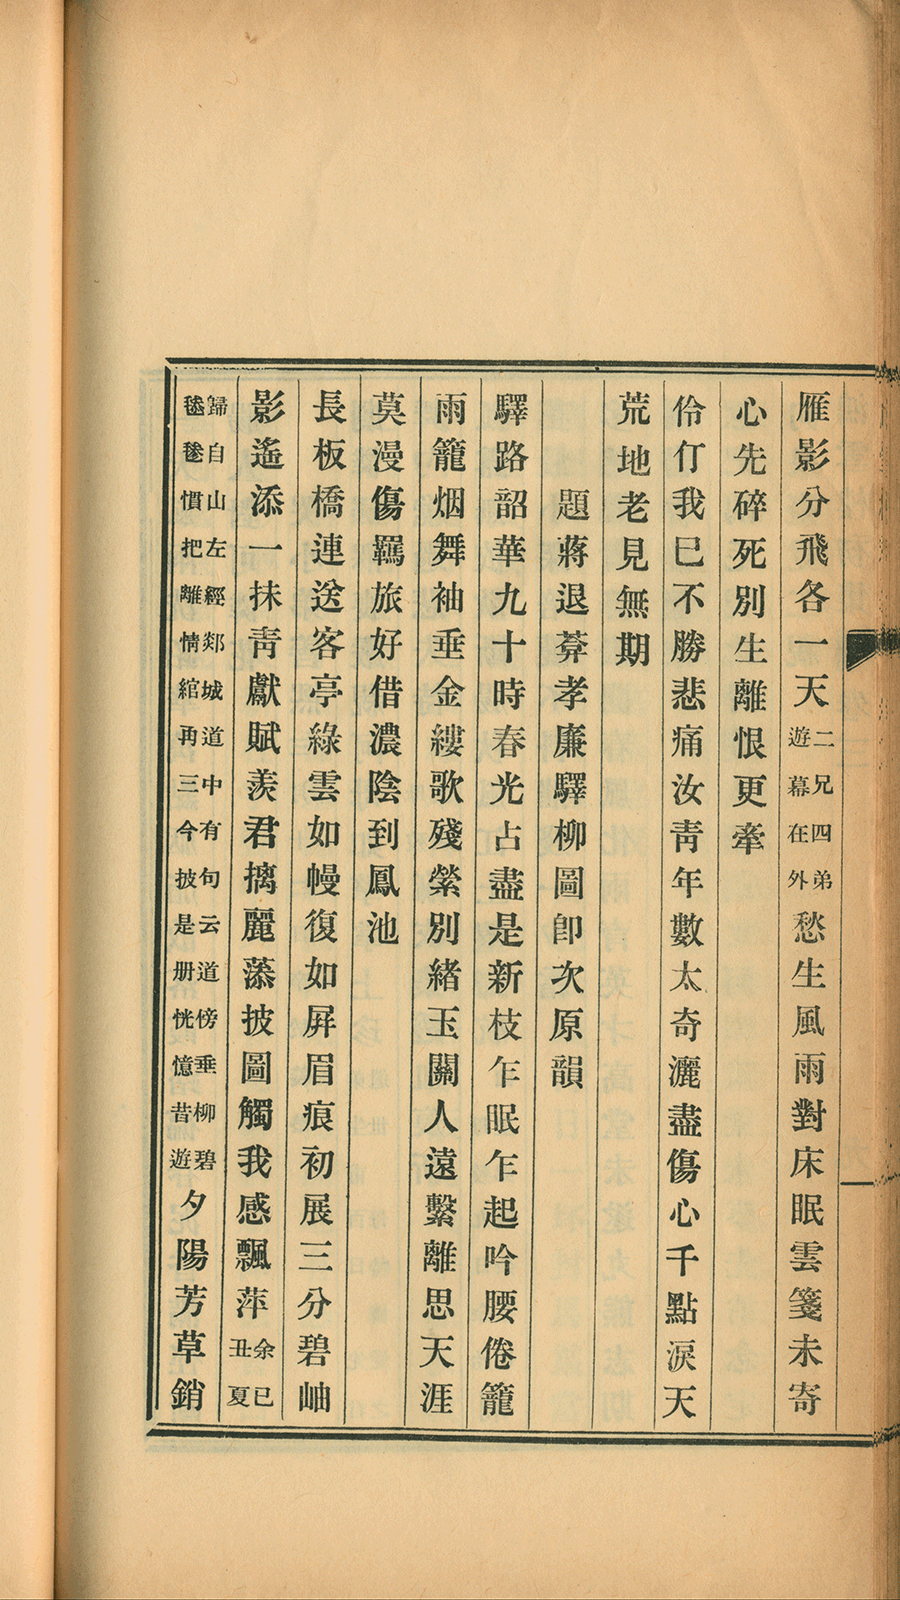 雁影分飛各一天二兄四弟遊幕在外愁生風雨對床眠雲箋未寄
心先碎死別生離恨更牽
伶仃我巳不勝悲痛汝靑年數太奇灑盡傷心千點淚天
荒地老見無期
題蔣退葊孝廉驛柳圖卽次原韻
驛路韶華九十時春光占盡是新枝乍眠乍起吟腰倦籠
雨籠烟舞袖垂金縷歌殘縈別緒玉關人遠繫離思天涯
莫漫傷羈旅好借濃陰到鳳池
長板橋連送客亭綠雲如幔復如屛眉痕初展三分碧岫
影遙添一抹靑獻賦羨君摛麗藻披圖觸我感飄萍余已丑夏
歸自山左經郯城道中有句云道傍垂柳碧毿毿慣把離情綰再三今披是册恍憶昔遊夕陽芳草銷